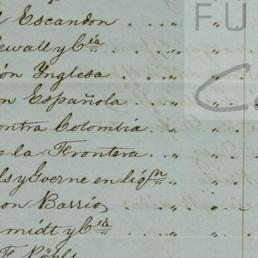 FU
l Escandon . . . „ . . „
ewall y Cía . . . „ . . „
ón Ynglesa . . . . „ . . „
n Española . . . . „ . . „
ontra Colombia . . „ . . „
e la Frontera . . . „ . . „
ls y Goerne en liqn . . „ . . „
on Barrio . . . „ . . „
midt y Cía . . . „ . . „